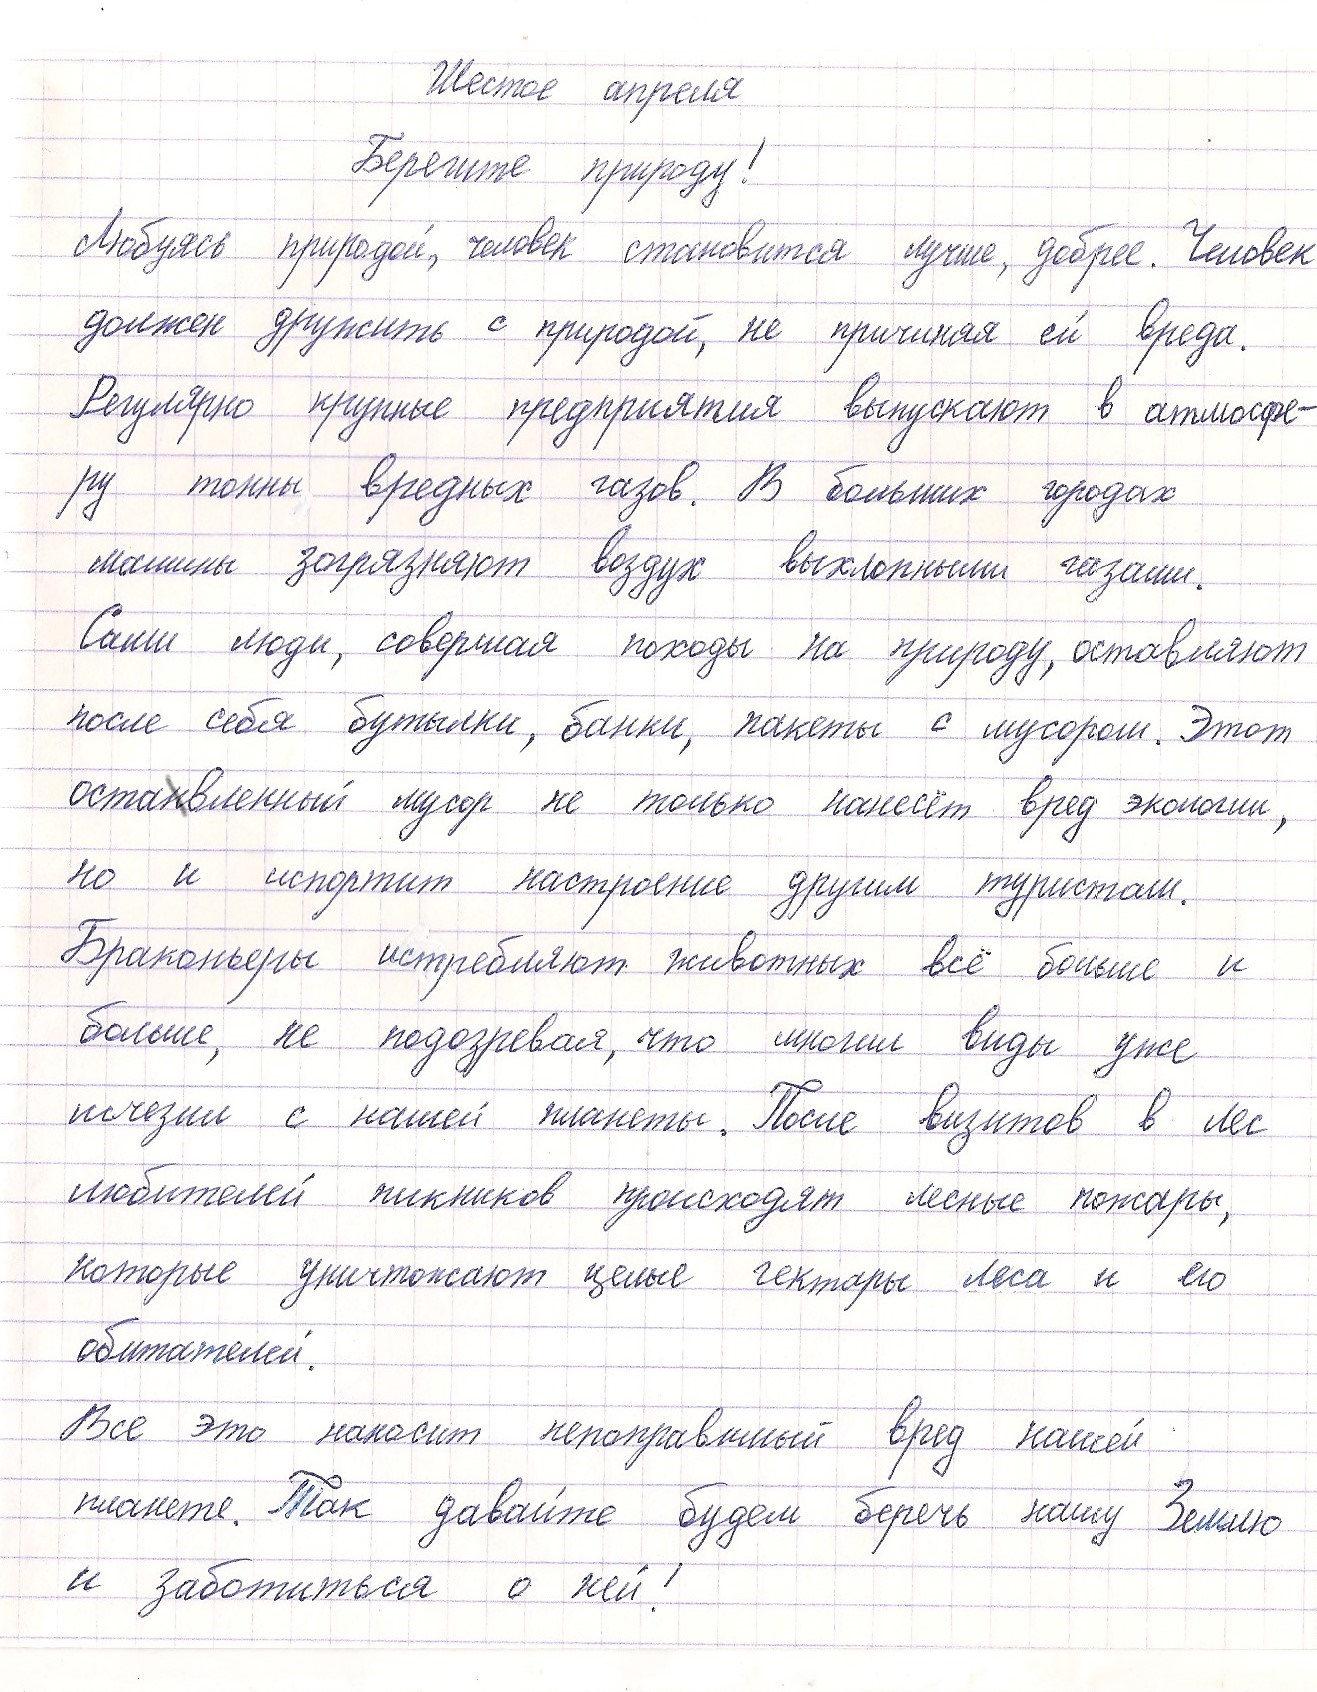 Шестое апреля
Берегите природу!
Любуясь природой, человек становится лучше, добрее. Человек
должен дружить с природой, не причиняя ей вреда.
Регулярно крупные предприятия выпускают в атмосфе-
ру тонны вредных газов. В больших городах
машины загрязняют воздух выхлопными газами.
Сами люди, совершая походы на природу, оставляют
после себя бутылки, банки, пакеты с мусором. Этот
оставленный мусор не только нанесёт вред экологии,
но и испортит настроение другим туристам.
Браконьеры истребляют животных всё больше и
больше, не подозревая, что многие виды уже
исчезли с нашей планеты. После визитов в лес
любителей пикников происходят лесные пожары,
которые уничтожают целые гектары леса и его
обитателей.
Все это наносит непоправимый вред нашей
планете. Так давайте будем беречь нашу Землю
и заботиться о ней!